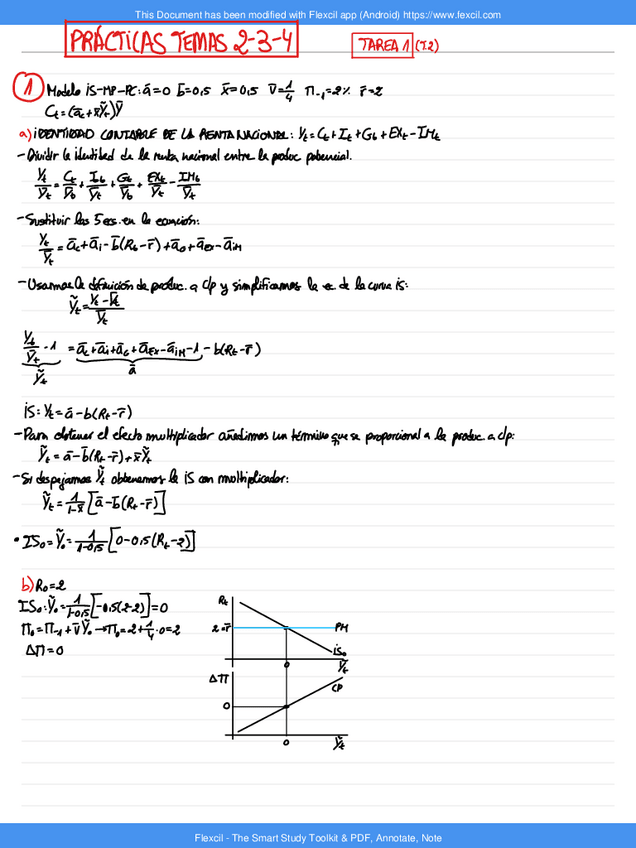 This Document has been modified with Flexcil app (Android) https://www.fexcil.com
PRÁCTICAS TEMAS 2-3-4
TAREA 1 (T.2)
1 Modelo IS-MP-PC: ā=0 b̄=0,5 x̄=0,5 v̄=1/4 Π₋₁=2% r̄=2
Ct=(āc+x̄Ỹt)Ȳ
a) IDENTIDAD CONTABLE DE LA RENTA NACIONAL: Yt=Ct+It+Gt+EXt-IMt
- Dividir la identidad de la renta nacional entre la produc potencial.
Yt/Ȳt = Ct/Ȳt + It/Ȳt + Gt/Ȳt + EXt/Ȳt - IMt/Ȳt
- Sustituir las 5 ecs. en la ecuación:
Yt/Ȳt = āc+āi-b̄(Rt-r̄)+āG+āEX-āIM
- Usamos la definición de produc. a c/p y simplificamos la ec de la curva IS:
Ỹt = Yt-Ȳt/Ȳt
Yt/Ȳt - 1 = āc+āi+āG+āEX-āIM-1 - b(Rt-r̄)
Ỹt ā
IS: Yt=ā-b(Rt-r̄)
- Para obtener el efecto multiplicador añadimos un término que se proporcional a la produc. a c/p:
Ỹt=ā-b̄(Rt-r̄)+x̄Ỹt
- Si despejamos Ỹt obtenemos la IS con multiplicador:
Ỹt = 1/1-x̄ [ā-b̄(Rt-r̄)]
• IS₀=Ỹ₀= 1/1-0,5 [0-0,5(Rt-2)]
b) R₀=2
IS₀:Ỹ₀= 1/1-0,5 [-0,5(2-2)]=0
Π₀=Π₋₁+v̄Ỹ₀ → Π₀=2+1/4·0=2
ΔΠ=0
Rt
2=r̄
PM
IS₀
0
Ỹt
ΔΠ
CP
0
0
Ỹt
Flexcil - The Smart Study Toolkit & PDF, Annotate, Note